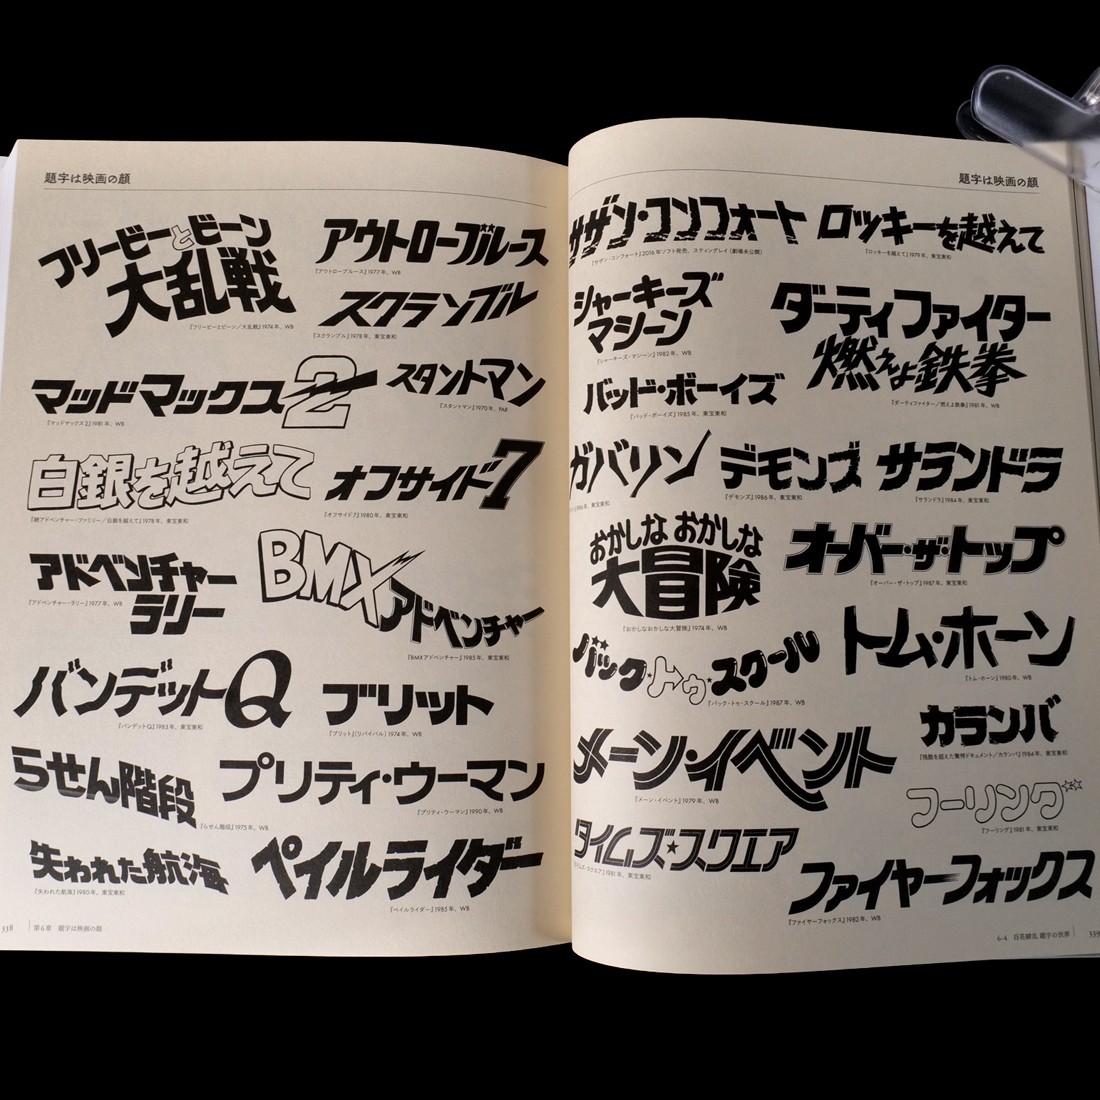 題字は映画の顔
フリービーとビーン
大乱戦
『フリービーとビーン/大乱戦』1974年、WB
アウトローブルース
『アウトローブルース』1977年、WB
スクランブル
『スクランブル』1978年、東宝東和
マッドマックス2
『マッドマックス2』1981年、WB
スタントマン
『スタントマン』1970年、PAR
白銀を越えて
『続アドベンチャー・ファミリー/白銀を越えて』1978年、東宝東和
オフサイド7
『オフサイド7』1980年、東宝東和
アドベンチャー
ラリー
『アドベンチャー・ラリー』1977年、WB
BMXアドベンチャー
『BMXアドベンチャー』1985年、東宝東和
バンデットQ
『バンデットQ』1983年、東宝東和
ブリット
『ブリット』(リバイバル)1974年、WB
らせん階段
『らせん階段』1975年、WB
プリティ・ウーマン
『プリティ・ウーマン』1990年、WB
失われた航海
『失われた航海』1980年、東宝東和
ペイルライダー
『ペイルライダー』1985年、WB
338
第6章 題字は映画の顔
題字は映画の顔
サザン・コンフォート
『サザン・コンフォート』2016年ソフト発売、スティングレイ(劇場未公開)
ロッキーを越えて
『ロッキーを越えて』1979年、東宝東和
シャーキーズ
マシーン
『シャーキーズ・マシーン』1982年、WB
ダーティファイター
燃えよ鉄拳
『ダーティファイター/燃えよ鉄拳』1981年、WB
バッド・ボーイズ
『バッド・ボーイズ』1985年、東宝東和
ガバリン
デモンズ
『デモンズ』1986年、東宝東和
サランドラ
『サランドラ』1984年、東宝東和
おかしな おかしな
大冒険
『おかしなおかしな大冒険』1974年、WB
オーバー・ザ・トップ
『オーバー・ザ・トップ』1987年、東宝東和
バック・トゥ・スクール
『バック・トゥ・スクール』1987年、WB
トム・ホーン
『トム・ホーン』1980年、WB
メーン・イベント
『メーン・イベント』1979年、WB
カランバ
『残酷を超えた驚愕ドキュメント/カランバ』1984年、東宝東和
フーリング
『フーリング』1981年、東宝東和
タイムズ★スクエア
『タイムズ・スクエア』1981年、東宝東和
ファイヤーフォックス
『ファイヤーフォックス』1982年、WB
6-4 百花繚乱 題字の世界
339